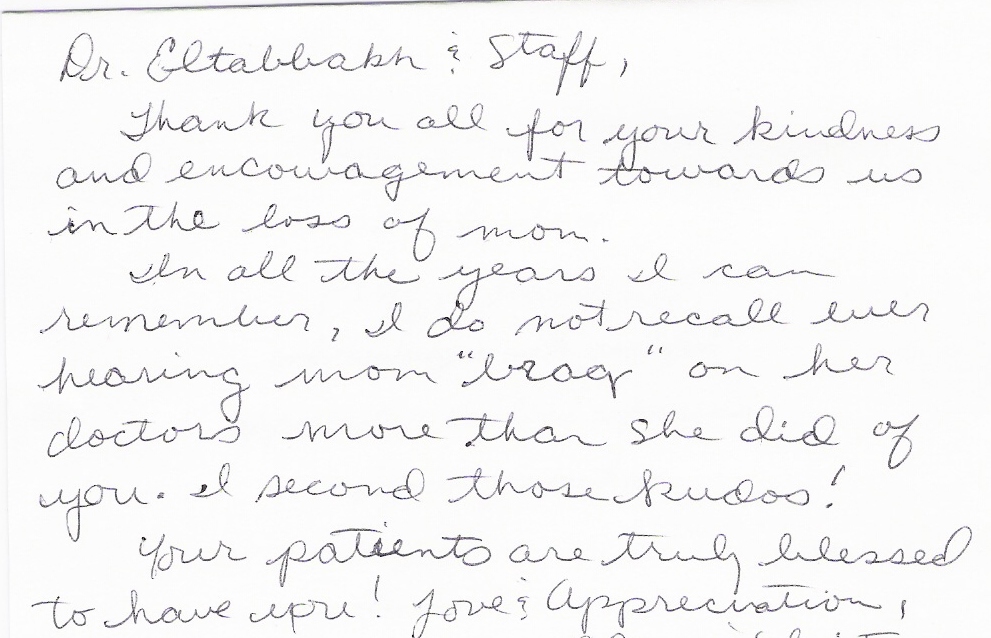 Dr. Eltabbakh & Staff,
Thank you all for your kindness
and encouragement towards us
in the loss of mom.
In all the years I can
remember, I do not recall ever
hearing mom "brag" on her
doctors more than she did of
you. I second those kudos!
Your patients are truly blessed
to have you! Love & Appreciation,